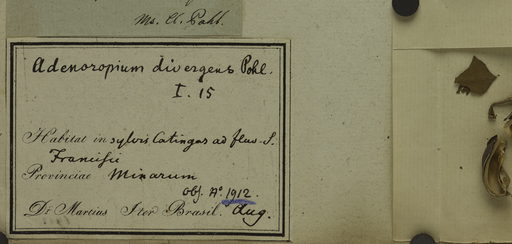 Ms. Cl. Pohl.
Adenoropium divergens Pohl.
I. 15
Habitat in sylvis Catingas ad fluv. S.
Francisci
Provinciae Minarum
Obs. No. 1912.
Dr. Martius Iter Brasil. Aug.